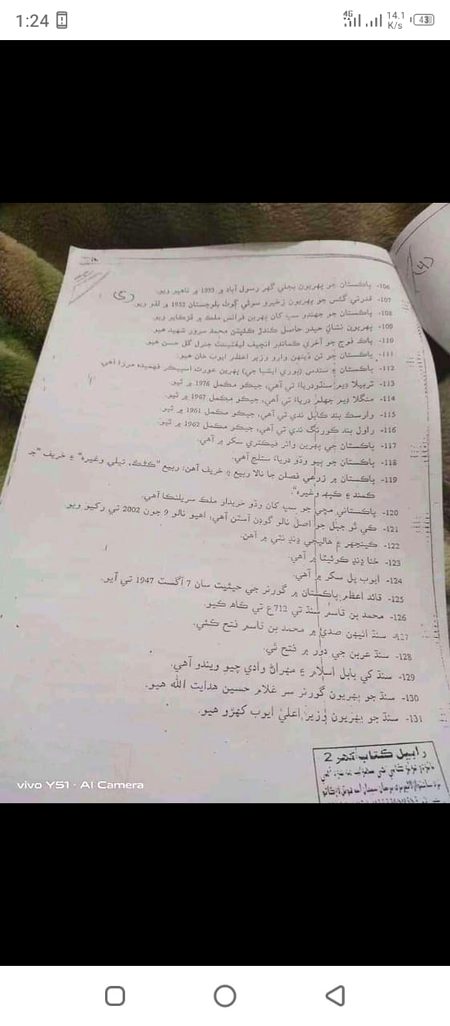 1:24
4G
14.1
K/s
43
106- پاڪستان جو پهريون بجلي گهر رسول آباد ۾ 1953 ۾ ويو.
107- قدرتي گئس جو پهريون ذخيرو سوئي ڳوٺ بلوچستان 1952 ۾ لڌو ويو.
108- پاڪستان جو جهنڊو سڀ کان پهرين فرانس ملڪ ۾ ڦڙڪايو ويو.
109- پهريون نشان حيدر حاصل ڪندڙ ڪئپٽن محمد سرور شهيد هيو.
110- پاڪ فوج جو آخري ڪمانڊر انچيف ليفٽيننٽ جنرل گل حسن هيو.
111- پاڪستان جو ٽن ڏينهن وارو وزير اعظر ايوب خان هيو.
112- پاڪستان ۽ سنڌس (پوري ايشيا جي) پهرين عورت اسپيڪر فهميده مرزا آهي.
113- تربيلا ڊيم سنڌودرياءَ تي آهي، جيڪو مڪمل 1976 ۾ ٿيو.
114- منگلا ڊيم جهلم درياءَ تي آهي، جيڪو مڪمل 1967 ۾ ٿيو.
115- وارسڪ بند ڪابل ندي تي آهي، جيڪو مڪمل 1961 ۾ ٿيو.
116- راول بند ڪورنگ ندي تي آهي، جيڪو مڪمل 1962 ۾ ٿيو.
117- پاڪستان جي پهرين واٽر فيڪٽري سکر ۾ آهي.
118- پاڪستان جو ٻيو وڏو درياءَ ستلج آهي.
119- پاڪستان ۾ زرعي فصلن جا نالا ربيع ۽ خريف آهن، ربيع "ڪڻڪ، تيلي وغيره" ۽ خريف
ڪمند ۽ ڪپهه وغيره".
120- پاڪستاني مڇي جو سڀ کان وڏو خريدار ملڪ سريلنڪا آهي.
121- ڪي ٽو جبل جو اصل نالو گوڊن آسٽن آهي، اهيو نالو 9 جون 2002 تي رکيو ويو.
122- ڪينجهر ۽ هاليجي ڍنڍ ٺٽي ۾ آهن.
123- حنا ڍنڍ ڪوئيٽا ۾ آهي.
124- ايوب پل سکر ۾ آهي.
125- قائد اعظم پاڪستان ۾ گورنر جي حيثيت سان 7 آگسٽ 1947 تي آيو.
126- محمد بن قاسم سنڌ تي 712ع تي ڪاهه ڪيو.
127- سنڌ اٺيهن صدي ۾ محمد بن قاسم فتح ڪئي.
128- سنڌ عربن جي دور ۾ فتح ٿي.
129- سنڌ کي بابل اسلام ۽ مهراڻ وادي چيو ويندو آهي.
130- سنڌ جو پهريون گورنر سر غلام حسين هدايت الله هيو.
131- سنڌ جو پهريون وزير اعليٰ ايوب کهڙو هيو.
رابيل ڪتاب گهر 2
vivo Y51 · AI Camera